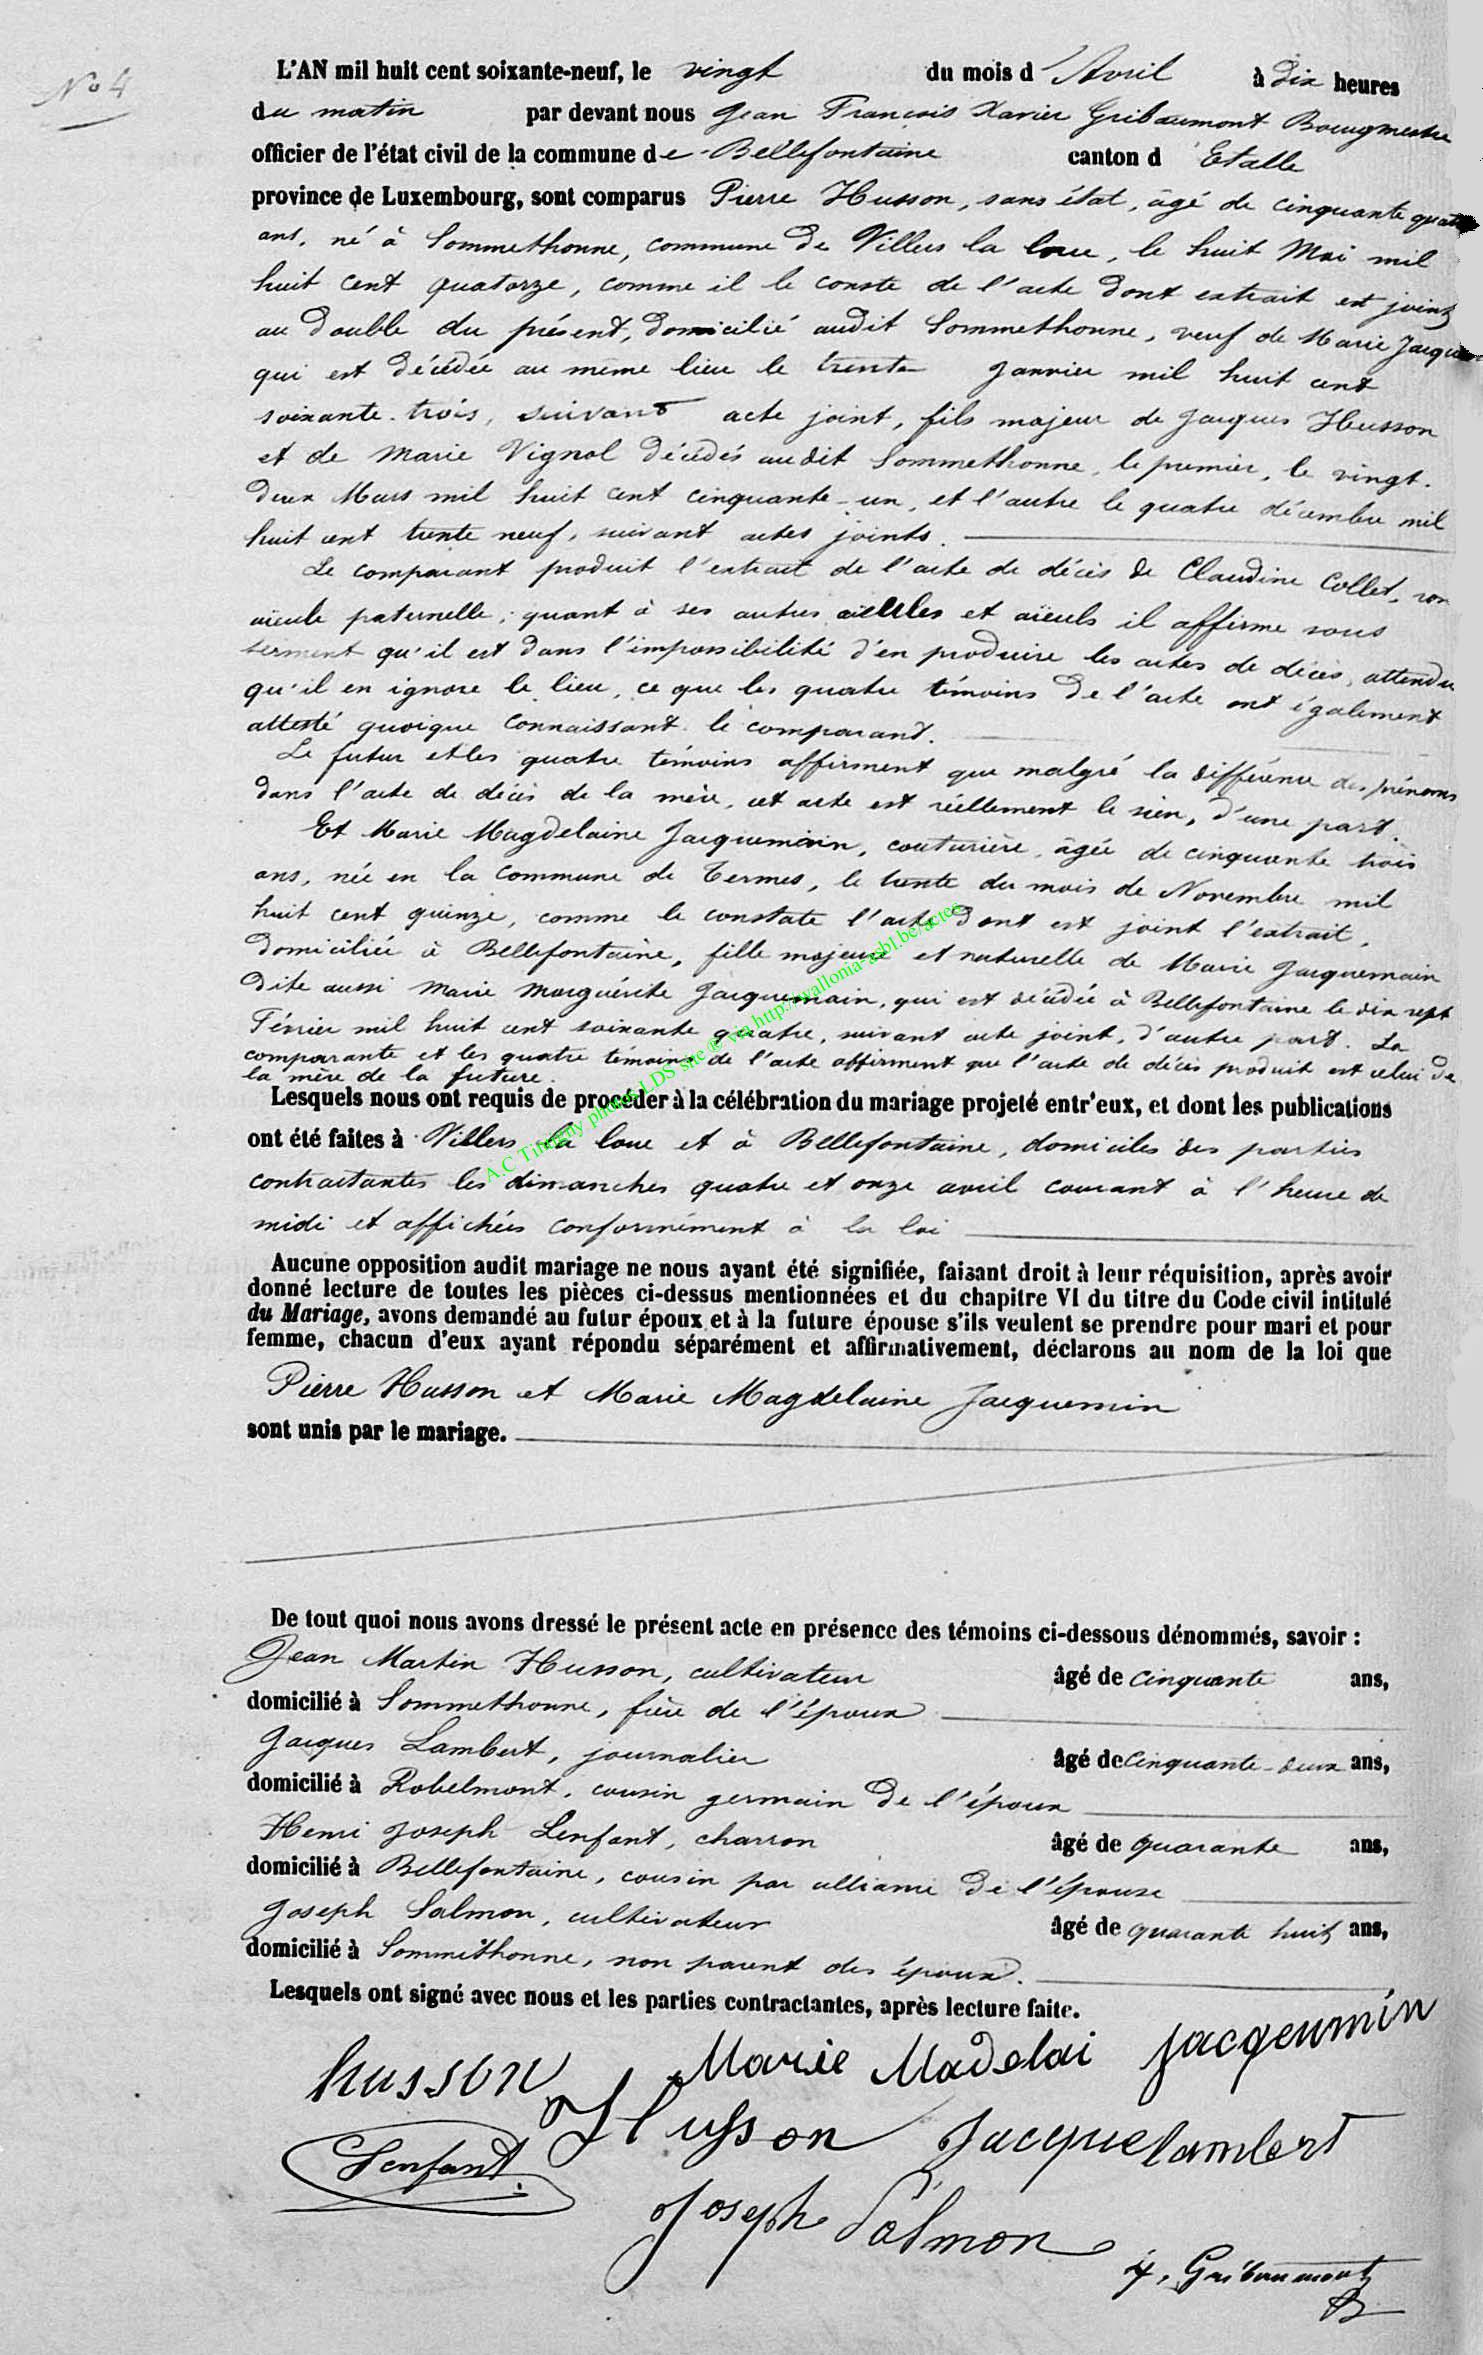 No 4
L'AN mil huit cent soixante-neuf, le vingt du mois d'Avril à dix heures
du matin par devant nous Jean François Xavier Gribaumont Bourgmestre
officier de l'état civil de la commune de Bellefontaine canton d'Etalle
province de Luxembourg, sont comparus Pierre Husson, sans état, âgé de cinquante quatre
ans, né à Sommethonne, commune de Villers la loue, le huit Mai mil
huit cent quatorze, comme il le conste de l'acte dont extrait est joint
au double du présent, domicilié audit Sommethonne, veuf de Marie
qui est décédée au même lieu le trente Janvier mil huit cent
soixante-trois, suivant acte joint, fils majeur de Jacques Husson
et de Marie Vignol décédés audit Sommethonne, le premier, le vingt-
deux Mars mil huit cent cinquante-un, et l'autre le quatre décembre mil
huit cent trente neuf, suivant actes joints.
Le comparant produit l'extrait de l'acte de décès de Claudine Collet, son
aïeule paternelle; quant à ses autres aïeules et aïeuls il affirme sous
serment qu'il est dans l'impossibilité d'en produire les actes de décès, attendu
qu'il en ignore le lieu, ce que les quatre témoins de l'acte ont également
attesté quoique connaissant le comparant.
Le futur et les quatre témoins affirment que malgré la différence des prénoms
dans l'acte de décès de la mère, cet acte est réellement le sien, d'une part.
Et Marie Magdelaine Jacquemin, couturière, âgée de cinquante trois
ans, née en la commune de Termes, le trente du mois de Novembre mil
huit cent quinze, comme le constate l'acte dont est joint l'extrait,
domiciliée à Bellefontaine, fille majeure et naturelle de Marie Jacquemain
dite aussi Marie Marguérite Jacquemain, qui est décédée à Bellefontaine le dix sept
Février mil huit cent soixante quatre, suivant acte joint, d'autre part. La
comparante et les quatre témoins de l'acte affirment que l'acte de décès produit est celui de
la mère de la future.
A.C Tintigny photos LDS site ® via http://wallonia-asbl.be/actes
Lesquels nous ont requis de procéder à la célébration du mariage projeté entr'eux, et dont les publications
ont été faites à Villers la loue et à Bellefontaine, domiciles des parties
contractantes les dimanches quatre et onze avril courant à l'heure de
midi et affichées conformément à la loi
Aucune opposition audit mariage ne nous ayant été signifiée, faisant droit à leur réquisition, après avoir
donné lecture de toutes les pièces ci-dessus mentionnées et du chapitre VI du titre du Code civil intitulé
du Mariage, avons demandé au futur époux et à la future épouse s'ils veulent se prendre pour mari et pour
femme, chacun d'eux ayant répondu séparément et affirmativement, déclarons au nom de la loi que
Pierre Husson et Marie Magdelaine Jacquemin
sont unis par le mariage.
De tout quoi nous avons dressé le présent acte en présence des témoins ci-dessous dénommés, savoir :
Jean Martin Husson, cultivateur âgé de cinquante ans,
domicilié à Sommethonne, frère de l'époux
Jacques Lambert, journalier âgé de cinquante-deux ans,
domicilié à Robelmont, cousin germain de l'époux
Henri Joseph Lenfant, charron âgé de quarante ans,
domicilié à Bellefontaine, cousin par alliance de l'épouse
Joseph Salmon, cultivateur âgé de quarante huit ans,
domicilié à Sommethonne, non parent des époux.
Lesquels ont signé avec nous et les parties contractantes, après lecture faite.
husson Marie Madelai Jacqeumin
Husson Jacque lambert
Lenfant
Joseph Salmon
Gribaumont